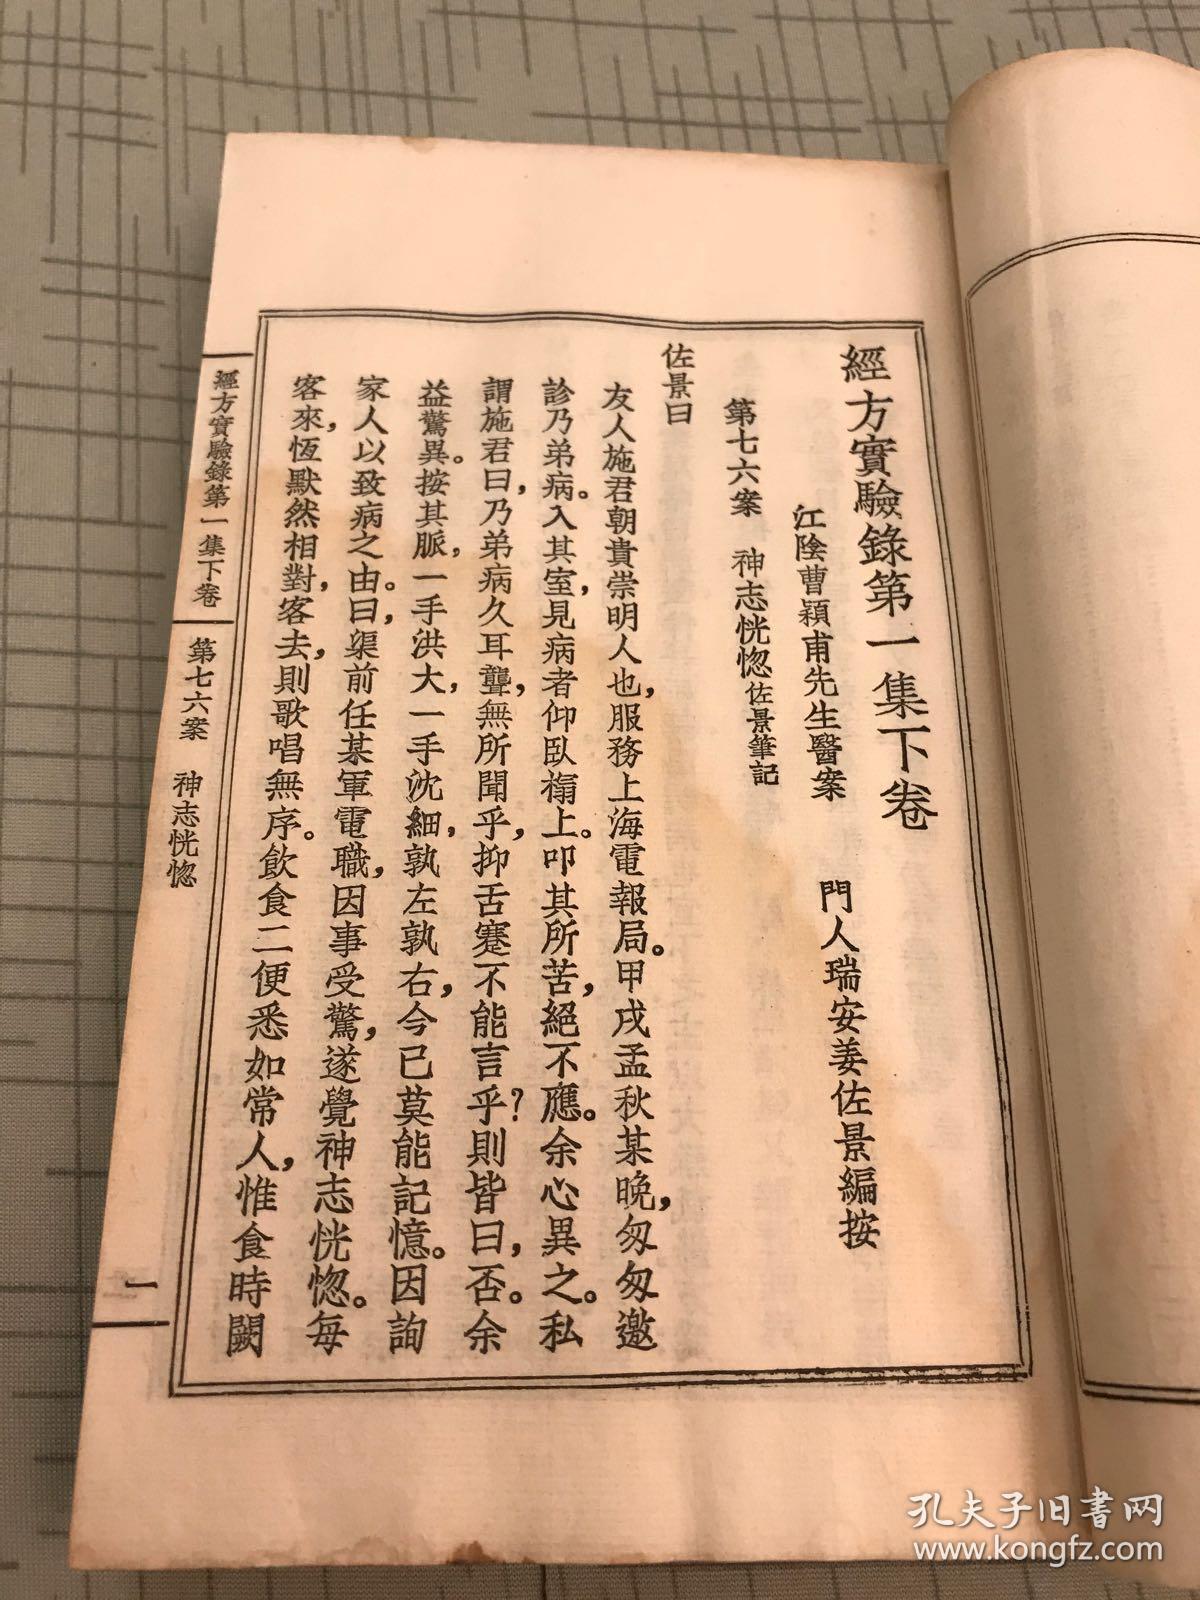 經方實驗錄第一集下卷
江陰曹穎甫先生醫案　門人瑞安姜佐景編按
第七六案　神志恍惚佐景筆記
佐景曰
友人施君朝貴崇明人也，服務上海電報局。甲戌孟秋某晚，匆匆邀
診乃弟病。入其室，見病者仰臥榻上。叩其所苦，絕不應。余心異之。私
謂施君曰，乃弟病久耳聾，無所聞乎，抑舌蹇不能言乎？則皆曰，否。余
益驚異。按其脈，一手洪大，一手沈細，孰左孰右，今已莫能記憶。因詢
家人以致病之由。曰，渠前任某軍電職，因事受驚，遂覺神志恍惚。每
客來，恆默然相對，客去，則歌唱無序。飲食二便悉如常人，惟食時闕
經方實驗錄第一集下卷　第七六案　神志恍惚
一
孔夫子旧书网
www.kongfz.com